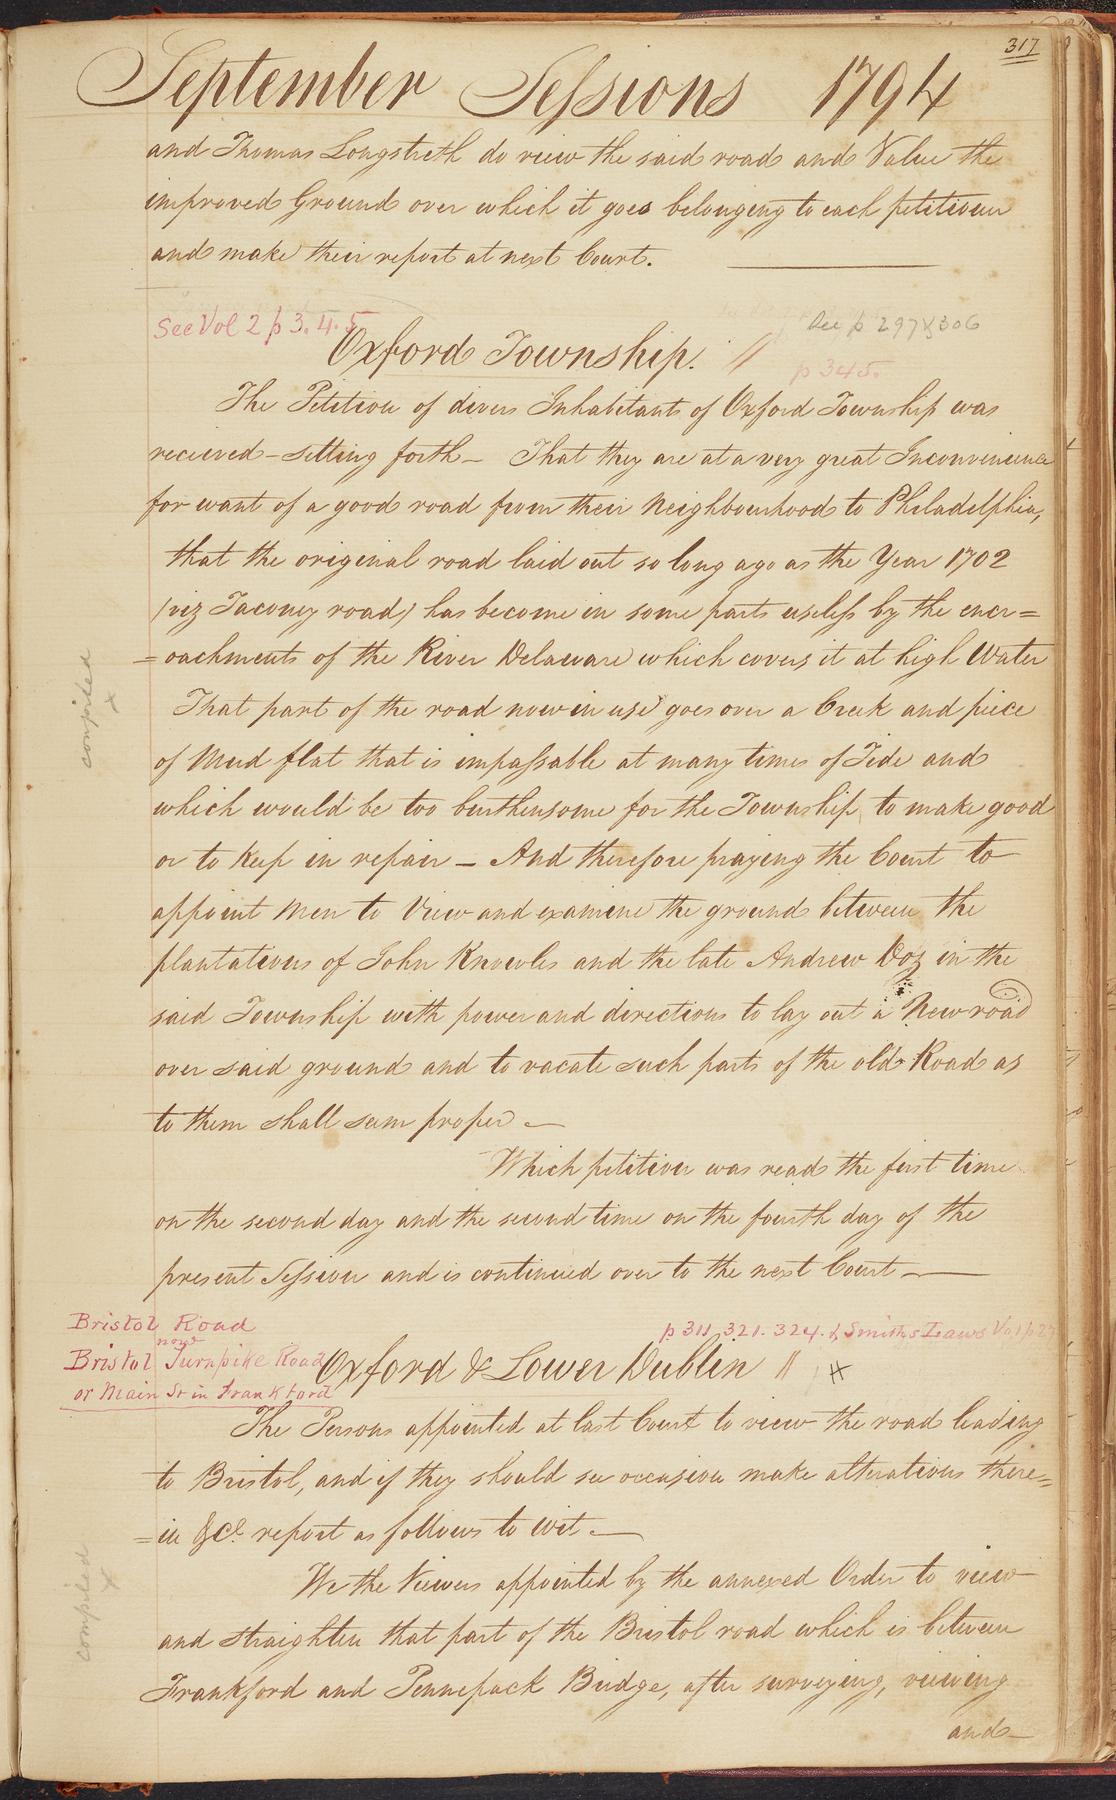 317
September Sessions 1794
and Thomas Longstreth do view the said road and Value the
improved Ground over which it goes belonging to each petitioner
and make their report at next Court.
See Vol 2 p 3. 4. 5
See p 297 & 306
Oxford Township. //
p 345.
The Petition of divers Inhabitants of Oxford Township was
recieved - setting forth - That they are at a very great Inconvenience
for want of a good road from their Neighbourhood to Philadelphia,
that the original road laid out so long ago as the Year 1702
(viz Taconey road) has become in some parts useless by the encr=
=oachments of the River Delaware which covers it at high Water
That part of the road now in use goes over a Creek and piece
of Mud flat that is impassable at many times of Tide and
which would be too burthensome for the Township to make good
or to keep in repair - And therefore praying the Court to
appoint Men to View and examine the ground between the
plantations of John Knowles and the late Andrew Doz in the
said Township with power and directions to lay out a New road
over said ground and to vacate such parts of the old Road as
to them shall seem proper -
compiled
x
Which petition was read the first time
on the second day and the second time on the fourth day of the
present Session and is continued over to the next Court -
Bristol Road
now
Bristol Turnpike Road
or Main St in Frankford
p 311 321. 324. & Smiths Laws Vo 1 p
Oxford & Lower Dublin //
The Persons appointed at last Court to view the road leading
to Bristol, and if they should see occasion make alterations there=
=in &c. report as follows to wit -
We the Viewers appointed by the annexed Order to view
and straighten that part of the Bristol road which is between
Frankford and Pennepack Bridge, after surveying, viewing
and -
compiled
x